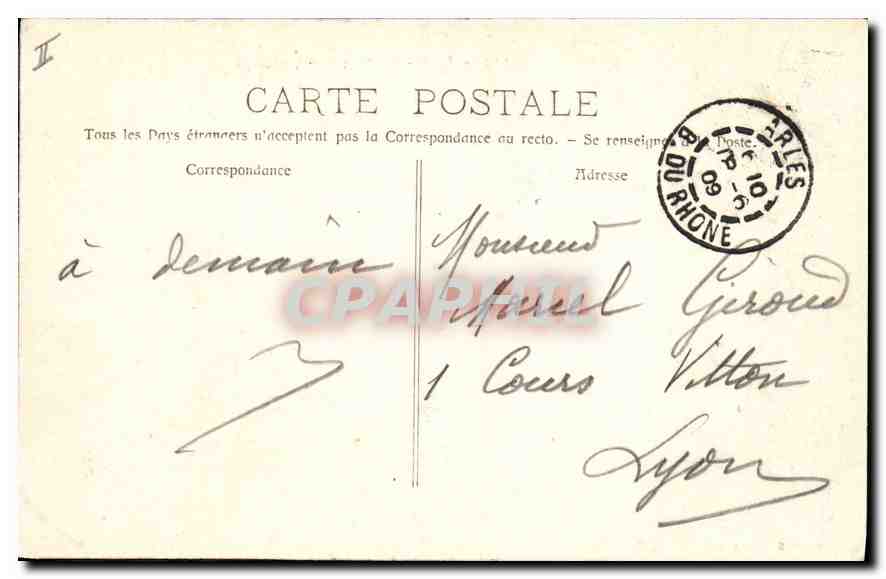 II
CARTE POSTALE
Tous les Pays étrangers n'acceptent pas la Correspondance au recto. – Se renseigner à la Poste.
Correspondance
à demain
Adresse
Monsieur
Marcel Giroud
1 Cours Vitton
Lyon
ARLES
B. DU RHONE
10 -6
09
CPAPHIL